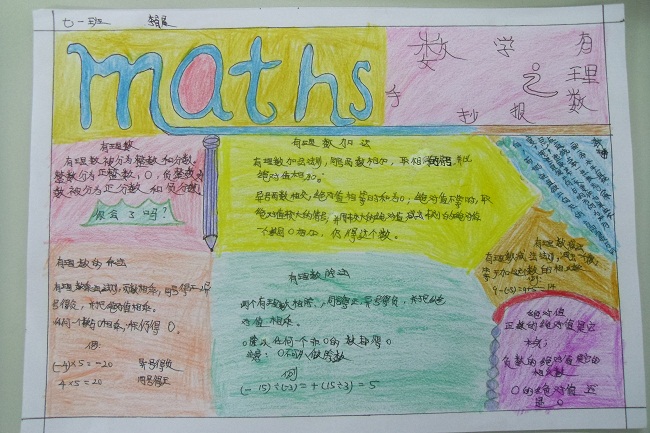 七一班
maths
数学之有理数
手抄报
有理数
有理数被分为整数和分数。
整数分为正整数,0,负整数
数被分为正分数和负分数。
你会了吗?
有理数加法
有理数加法法则,同号两数相加,取相同的
绝对值相加。
异号两数相加,绝对值相等时和为0;绝对值不等时,取
绝对值较大的符号,并用较大的绝对值减去较小的绝对值
一个数同0相加,仍得这个数。
有理数减法
有理数减法法则,减去一个数,
等于加这个数的相反数
有理数的乘法
有理数乘法法则,两数相乘,同号得正,异
号得负,并把绝对值相乘。
任何一个数与0相乘,都得0。
例:
(-4)×5=-20 异号得负
4×5=20 同号得正
有理数除法
两个有理数相除,同号得正,异号得负,并把绝
对值相乘。
0除以任何一个不0的数都得0
注意:0不可以做除数
例
(-15)÷(-3)=+(15÷3)=5
绝对值
正数的绝对值是它
本身;
负数的绝对值是它的
相反数
0的绝对值还
是0